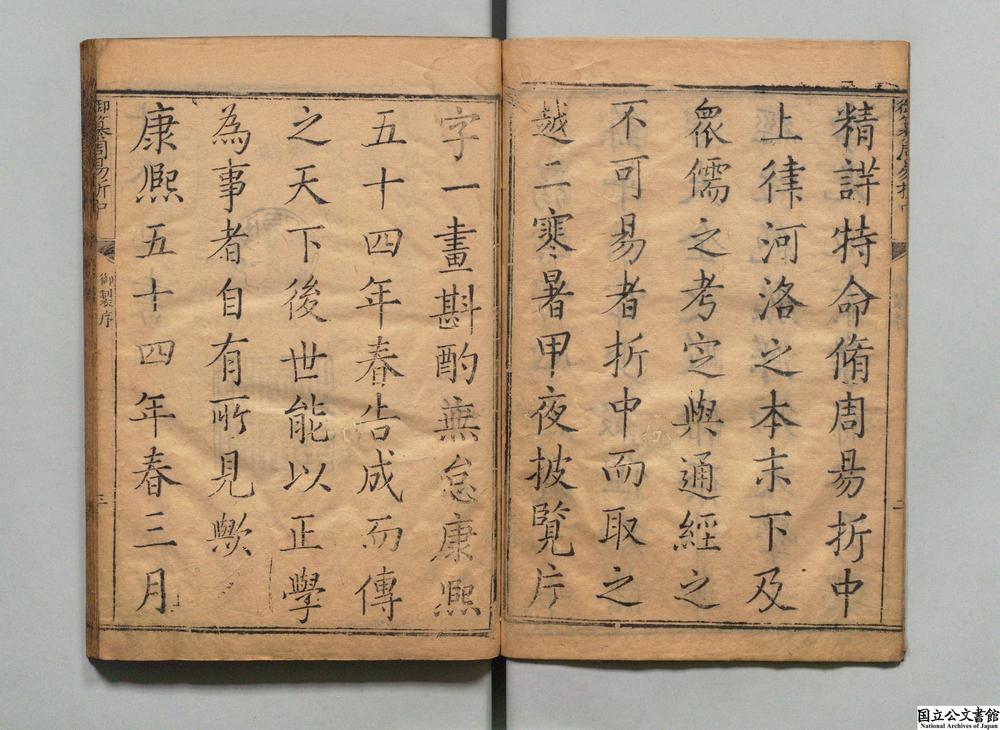 精詳特命脩周易折中
上律河洛之本末下及
眾儒之考定與通經之
不可易者折中而取之
越二寒暑甲夜披覽片
二
字一畫斟酌無怠康熙
五十四年春告成而傳
之天下後世能以正學
為事者自有所見歟
康熙五十四年春三月
御纂周易折中
御製序
三
国立公文書館
National Archives of Japan